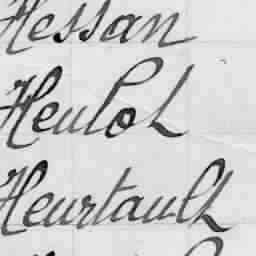 Hessan
Heulot
Heurtault